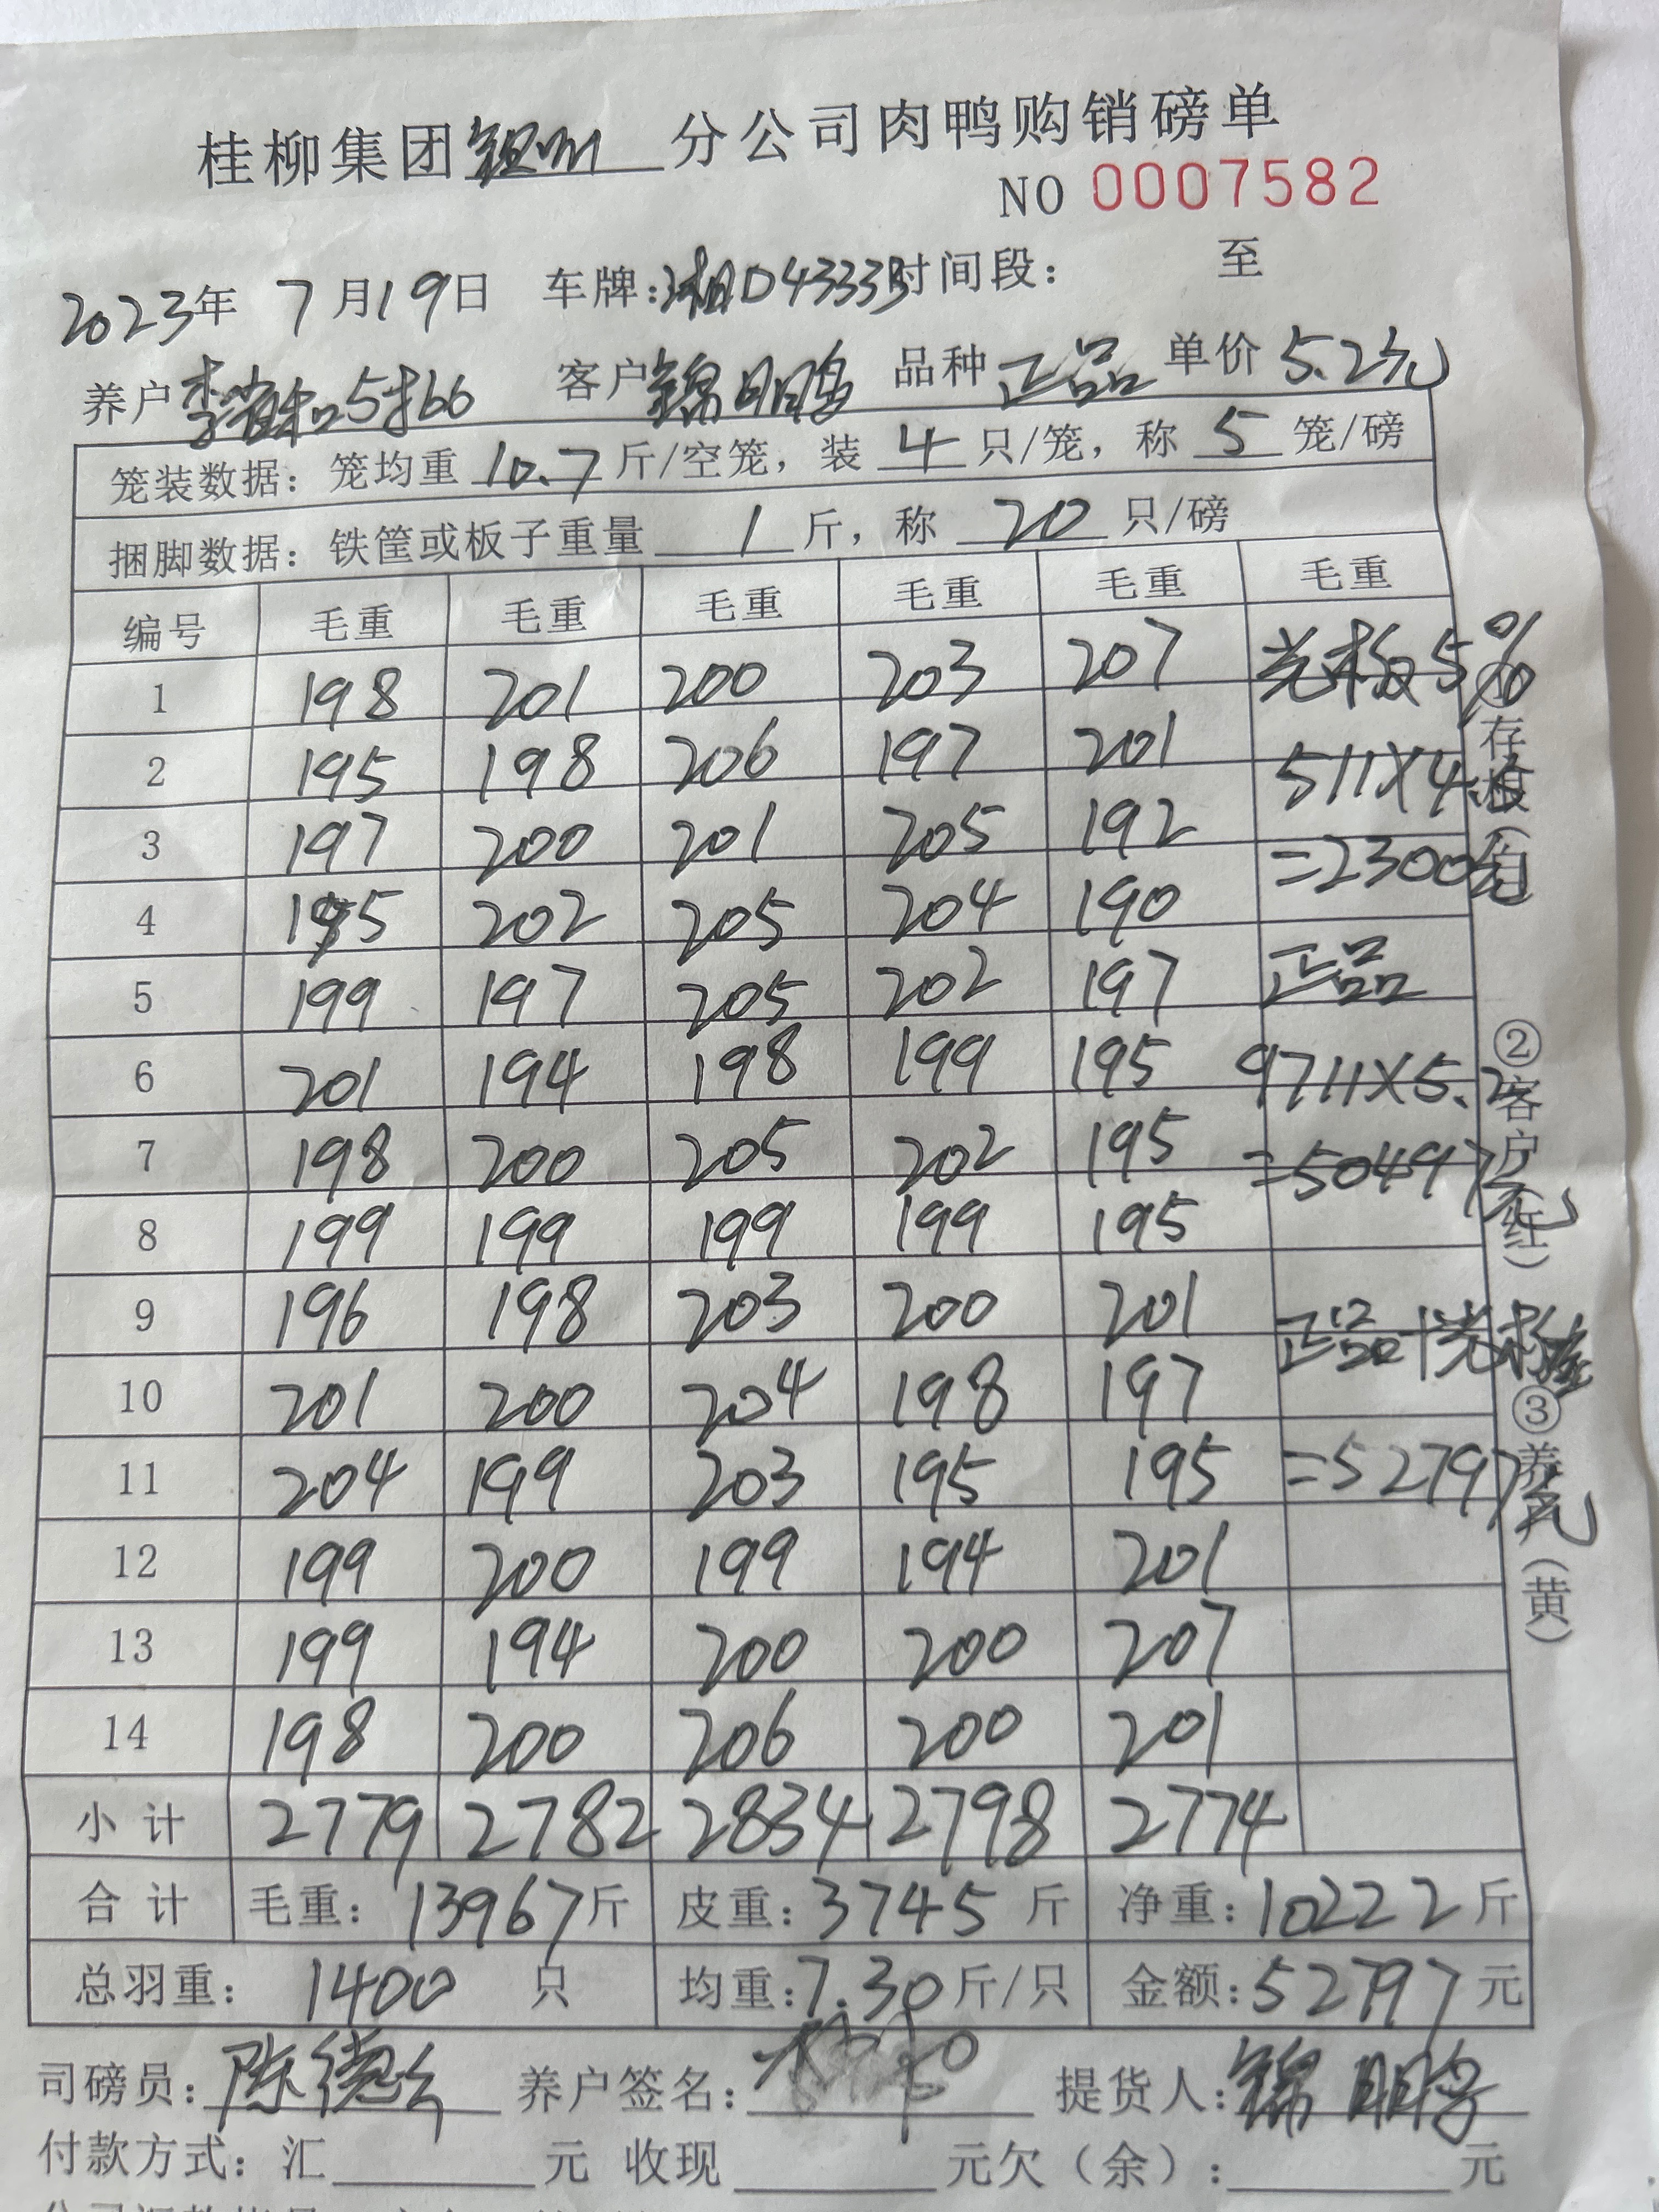 桂柳集团 分公司肉鸭购销磅单
NO 0007582
2023年 7月19日 车牌:湘D43333 时间段: 至
养户 李 和5#66 客户 锦明鸽 品种 正品 单价 5.2元
笼装数据: 笼均重 10.7 斤/空笼, 装 4 只/笼, 称 5 笼/磅
捆脚数据: 铁筐或板子重量 1 斤, 称 20 只/磅
编号 毛重 毛重 毛重 毛重 毛重 毛重
1 198 201 200 203 207 光板5%
2 195 198 206 197 201 511X4.5
3 197 200 201 205 192 =2300元
4 195 202 205 204 190
5 199 197 205 202 197 正品
6 201 194 198 199 195 9711X5.2
7 198 200 205 202 195 =50497元
8 199 199 199 199 195
9 196 198 203 200 201 正品+光板
10 201 200 204 198 197
11 204 199 203 195 195 =52797元
12 199 200 199 194 201
13 199 194 200 200 207
14 198 200 206 200 201
小计 2779 2782 2834 2798 2774
合计 毛重: 13967斤 皮重: 3745 斤 净重: 10222斤
总羽重: 1400 只 均重: 7.30斤/只 金额: 52797元
司磅员: 陈德 养户签名: 提货人: 锦明鸽
付款方式: 汇 元 收现 元欠(余): 元
①存根(白)
②客户(红)
③养户(黄)